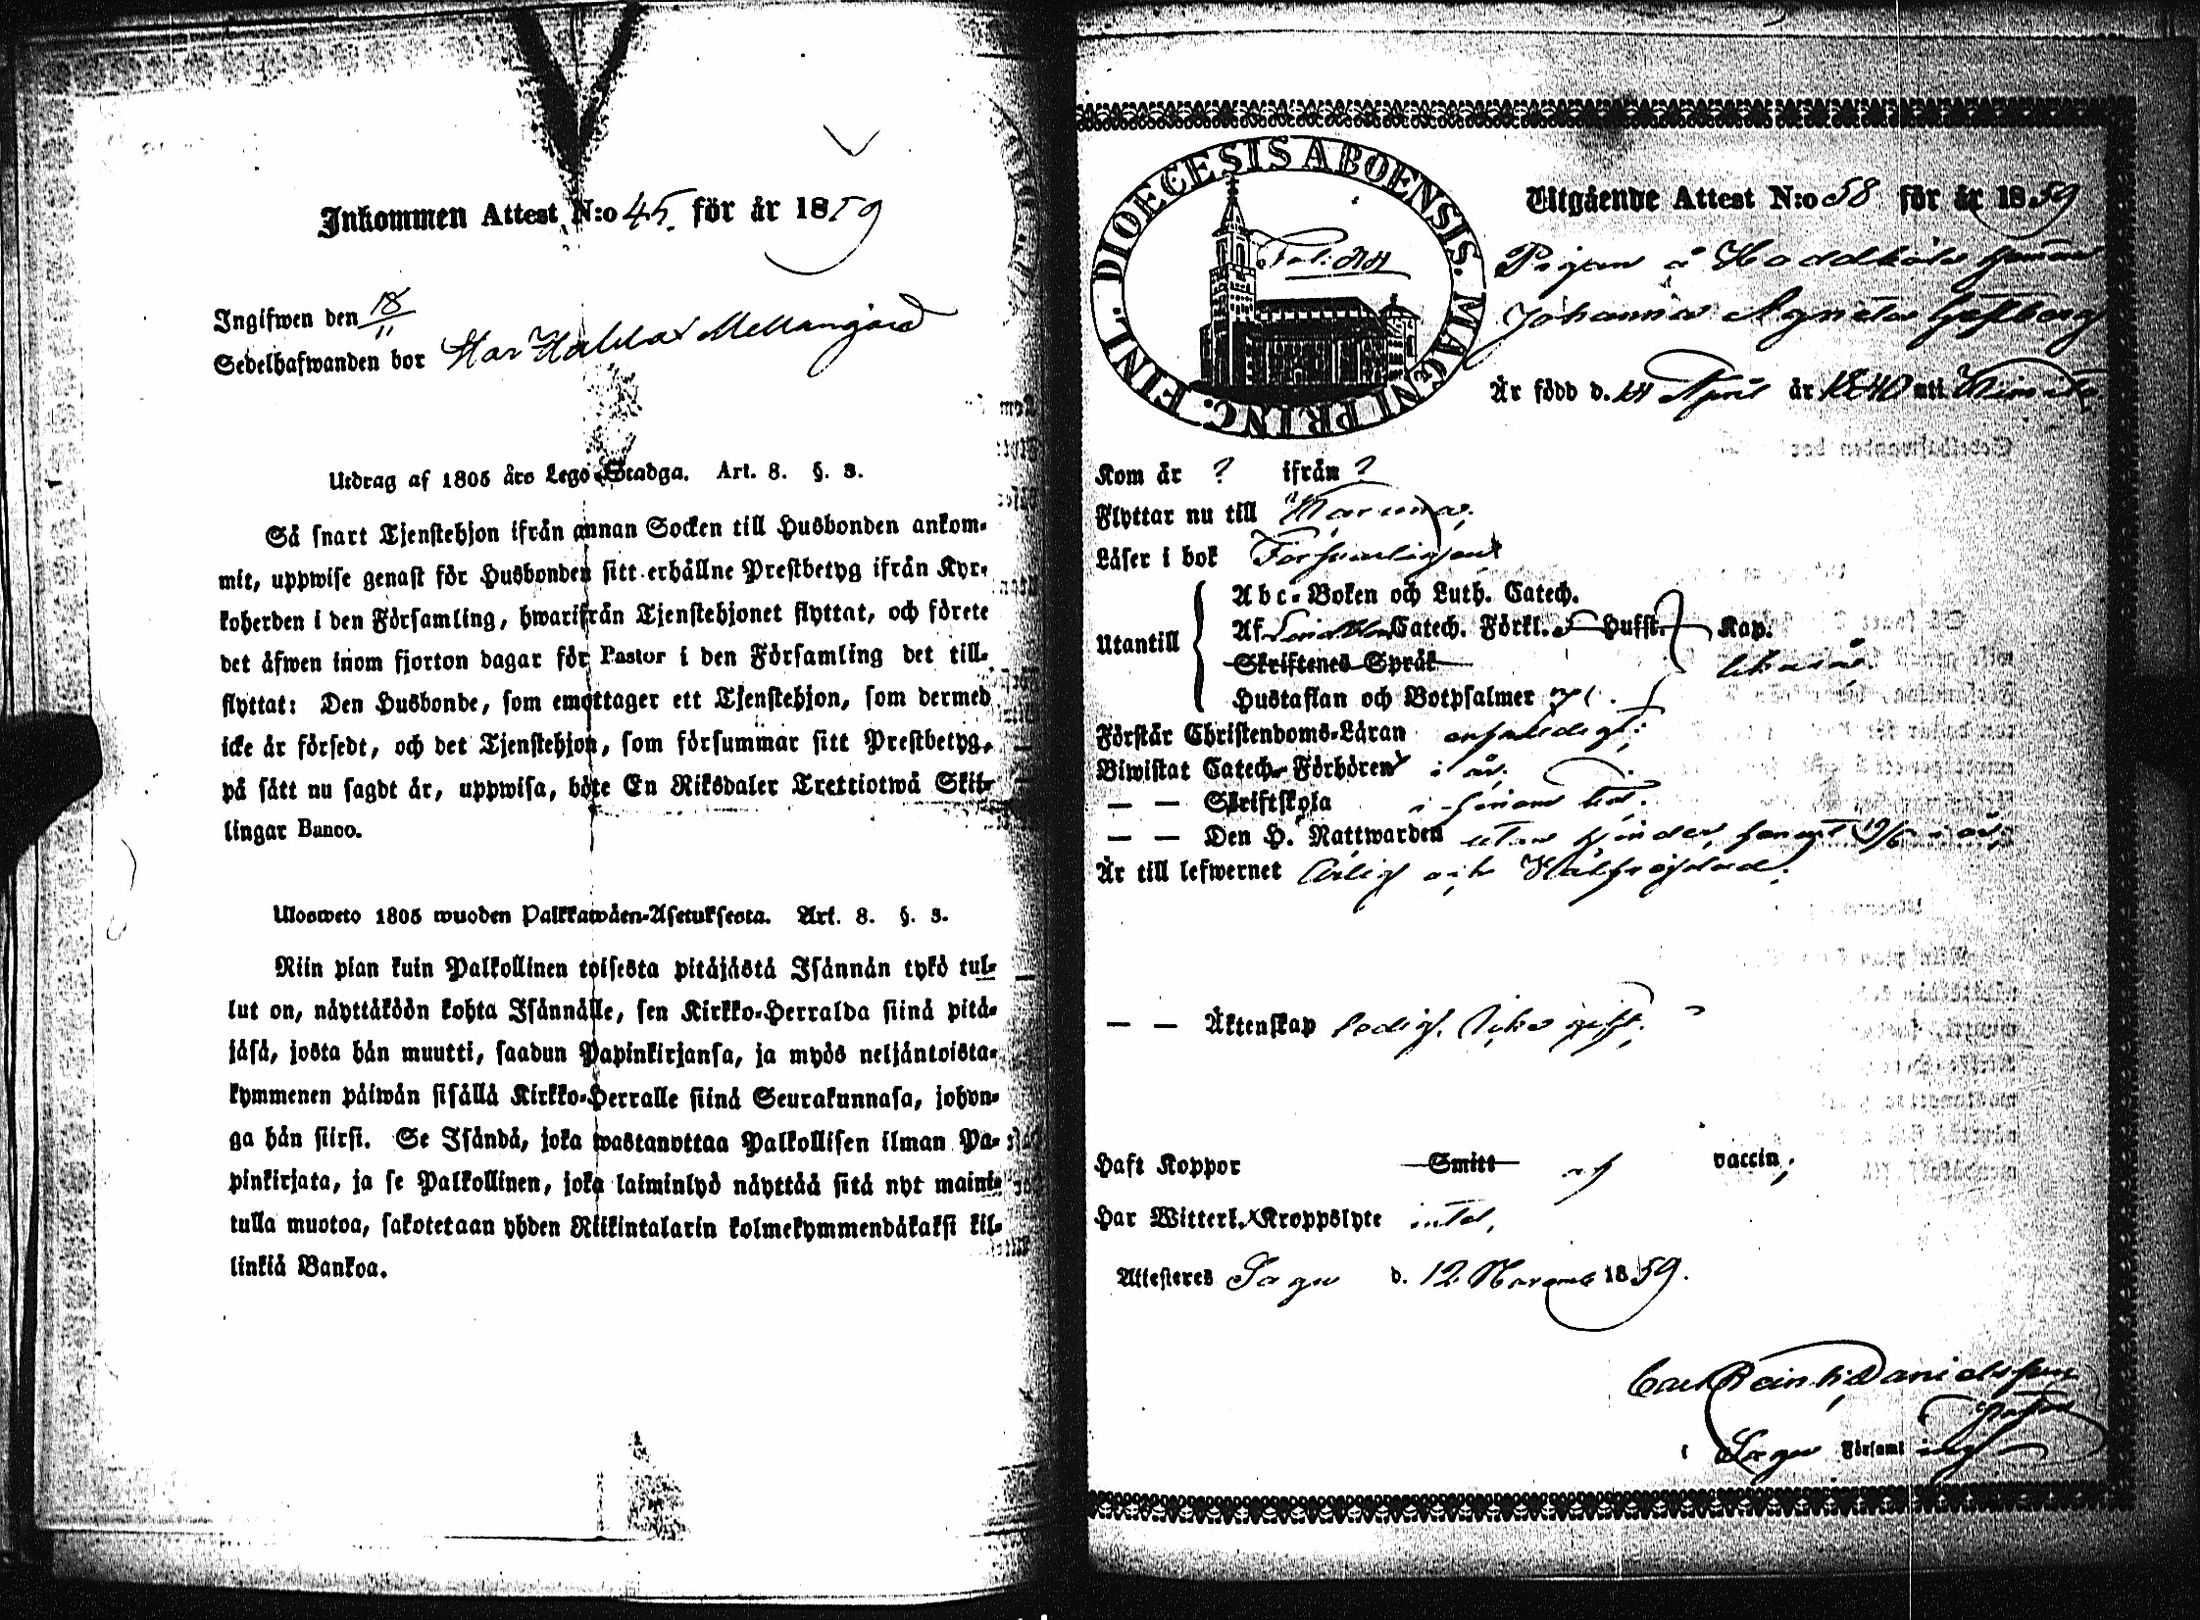 Inkommen Attest N:o 45. för år 1859
Ingifwen den 18/11
Sedelhafwanden bor Mellangård
Utdrag af 1805 års Lego-Stadga. Art. 8. §. 3.
Så snart Tjenstehjon ifrån annan Socken till Husbonden ankom-
mit, uppwise genast för Husbonden sitt erhållne Prestbetyg ifrån Kyr-
koherden i den Församling, hwarifrån Tjenstehjonet flyttat, och förete
det äfwen inom fjorton dagar för Pastor i den Församling det till-
flyttat: Den Husbonde, som emottager ett Tjenstehjon, som dermed
icke är försedt, och det Tjenstehjon, som försummar sitt Prestbetyg,
på sätt nu sagdt är, uppwisa, böte En Riksdaler Trettiotwå Skil-
lingar Banco.
Ulosweto 1805 wuoden Palkkawäen-Asetuksesta. Art. 8. §. 3.
Niin pian kuin Palkollinen toisesta pitäjästä Isännän tykö tul-
lut on, näyttäköön kohta Isännälle, sen Kirkko-Herralda siinä pitä-
jäsä, josta hän muutti, saadun Papinkirjansa, ja myös neljäntoista-
kymmenen päiwän sisällä Kirkko-Herralle siinä Seurakunnasa, johon-
ga hän siirsi. Se Isändä, joka wastanottaa Palkollisen ilman Pa-
pinkirjata, ja se Palkollinen, joka laiminlyö näyttää sitä nyt maini-
tulla muotoa, sakotetaan yhden Riikintalarin kolmekymmendäkaksi kil-
linkiä Bankoa.
DIOECESIS ABOENSIS. MAGNI PRINC. FINL.
Utgående Attest N:o 58 för år 1859
Pigan å
Johanna Agneta
Är född d. 14 April år 1840 uti Kimito
Kom år ? ifrån ?
Flyttar nu till
Läser i bok Försvarligen
Utantill
Abc-Boken och Luth. Catech.
Af Catech. Förkl. Husst. Kap.
Skriftenes Språk
Hustaflan och Botpsalmer
Förstår Christendoms-Läran
Biwistat Catech. Förhören i år.
— — Skriftskola i sinom tid.
— — Den H. Nattwarden utan hinder, senast 19/6 i år;
Är till lefwernet Ärlig och Wälfrejdad.
— — Äktenskap ledig. Icke gift.
Haft Koppor Smitt af vaccin;
Har Witterl. Kroppslyte intet.
Attesteres Sagu d. 12 Novemb 1859.
Carl Reinh. Danielsson
Pastor
i Sagu Församling